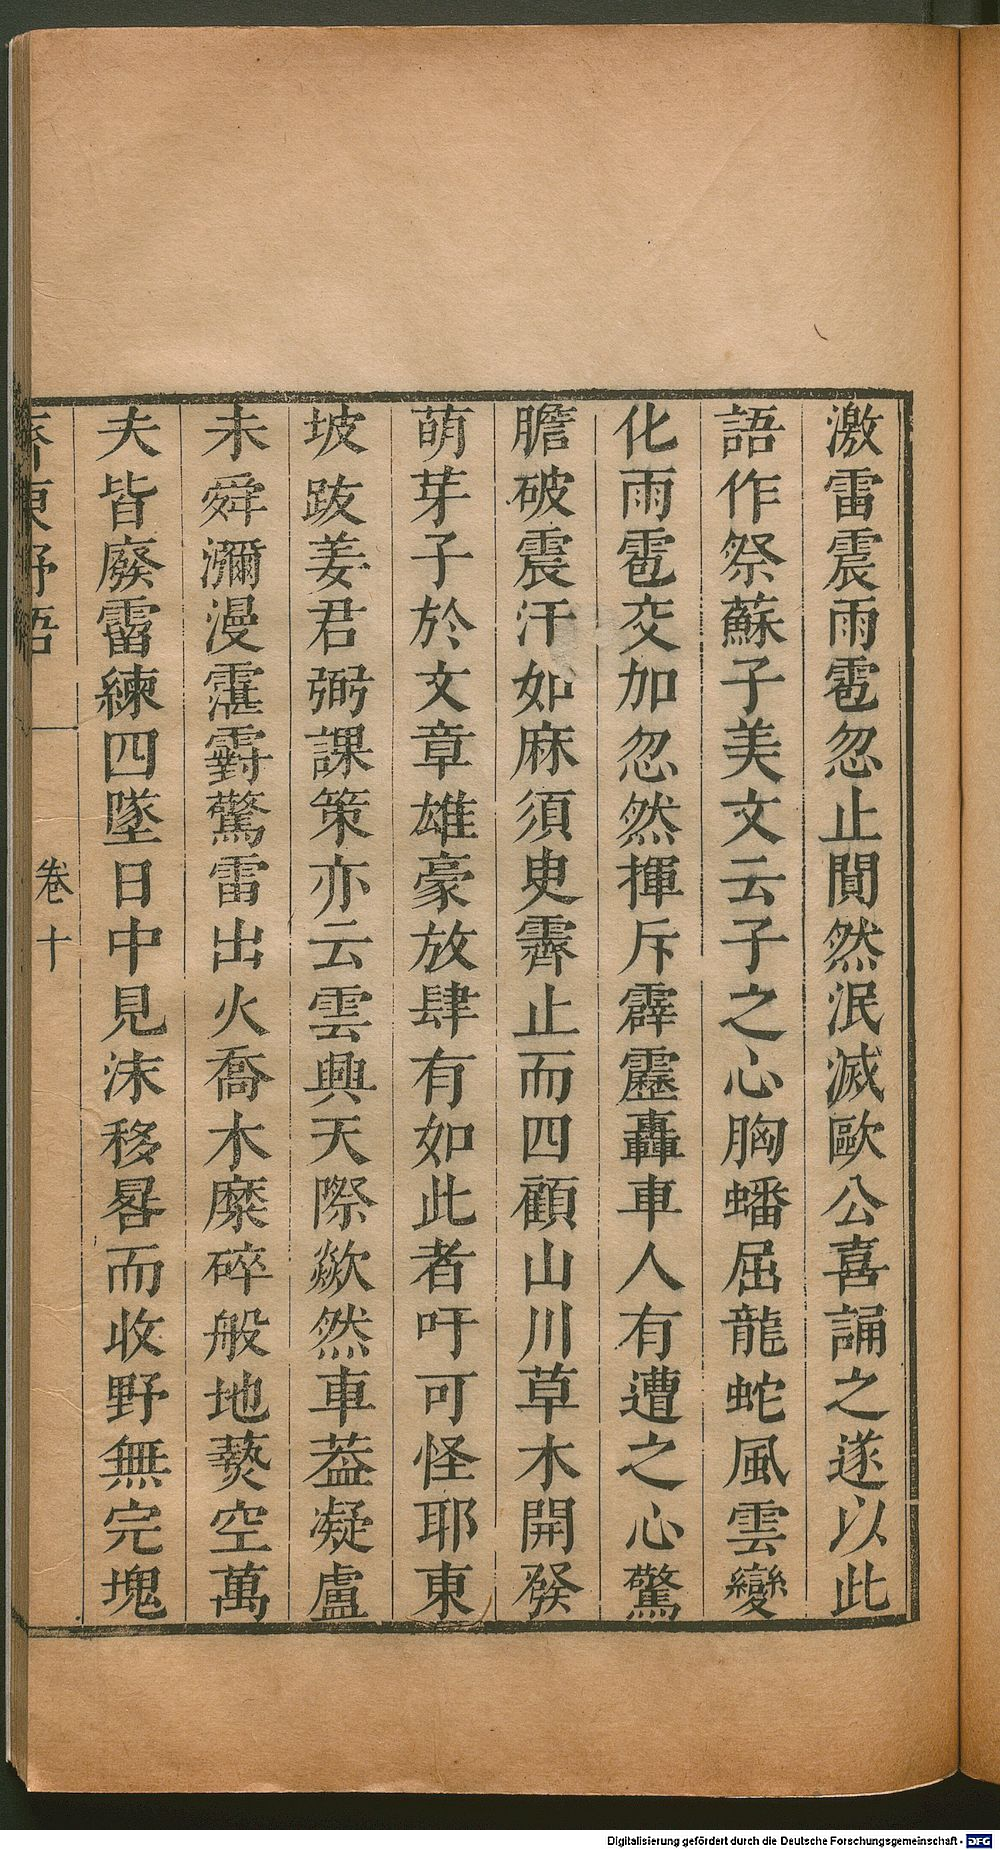 激雷震雨雹忽止闃然泯滅歐公喜誦之遂以此
語作祭蘇子美文云子之心胸蟠屈龍蛇風雲變
化雨雹交加忽然揮斥霹靂轟車人有遭之心驚
膽破震汗如麻須臾霽止而四顧山川草木開發
萌芽子於文章雄豪放肆有如此者吁可怪耶東
坡跋姜君弼課策亦云雲興天際歘然車蓋凝盧
未舜瀰漫霮䨴驚雷出火喬木糜碎般地爇空萬
夫皆廢霤練四墜日中見沫移晷而收野無完塊
齊東野語
卷十
Digitalisierung gefördert durch die Deutsche Forschungsgemeinschaft - DFG